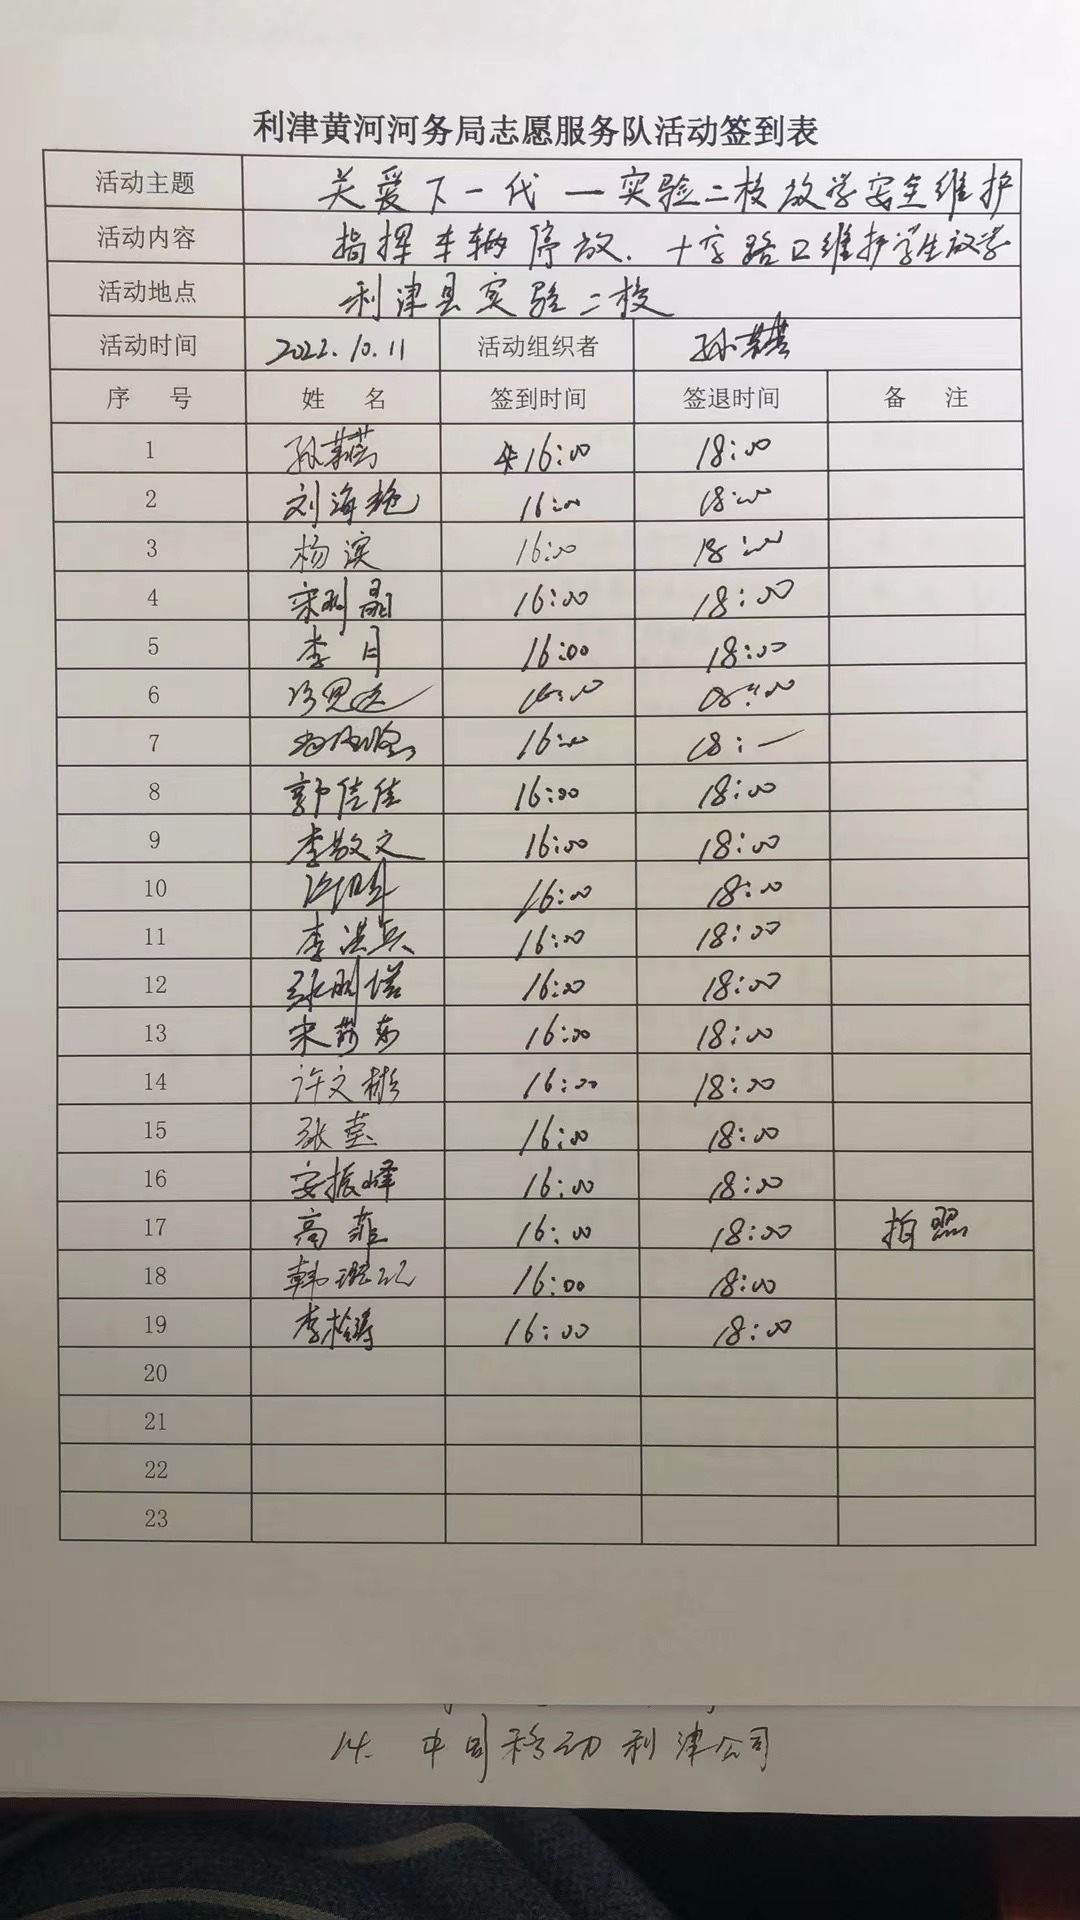 利津黄河河务局志愿服务队活动签到表
活动主题 关爱下一代—实验二校放学安全维护
活动内容 指挥车辆停放、十字路口维护学生放学
活动地点 利津县实验二校
活动时间 2022.10.11 活动组织者 孙
序 号 姓 名 签到时间 签退时间 备 注
1 孙 16:00 18:00
2 刘海艳 16:00 18:00
3 杨滨 16:00 18:00
4 宋利晶 16:00 18:00
5 李月 16:00 18:00
6 16:00 18:00
7 16:00 18:—
8 郭佳佳 16:00 18:00
9 李敬文 16:00 18:00
10 16:00 18:00
11 李洪兵 16:00 18:00
12 张 16:00 18:00
13 宋莉莉 16:00 18:00
14 许文彬 16:00 18:00
15 张莹 16:00 18:00
16 安振峰 16:00 18:00
17 高菲 16:00 18:00 拍照
18 韩 16:00 18:00
19 李 16:00 18:00
20
21
22
23
14. 中国移动利津公司